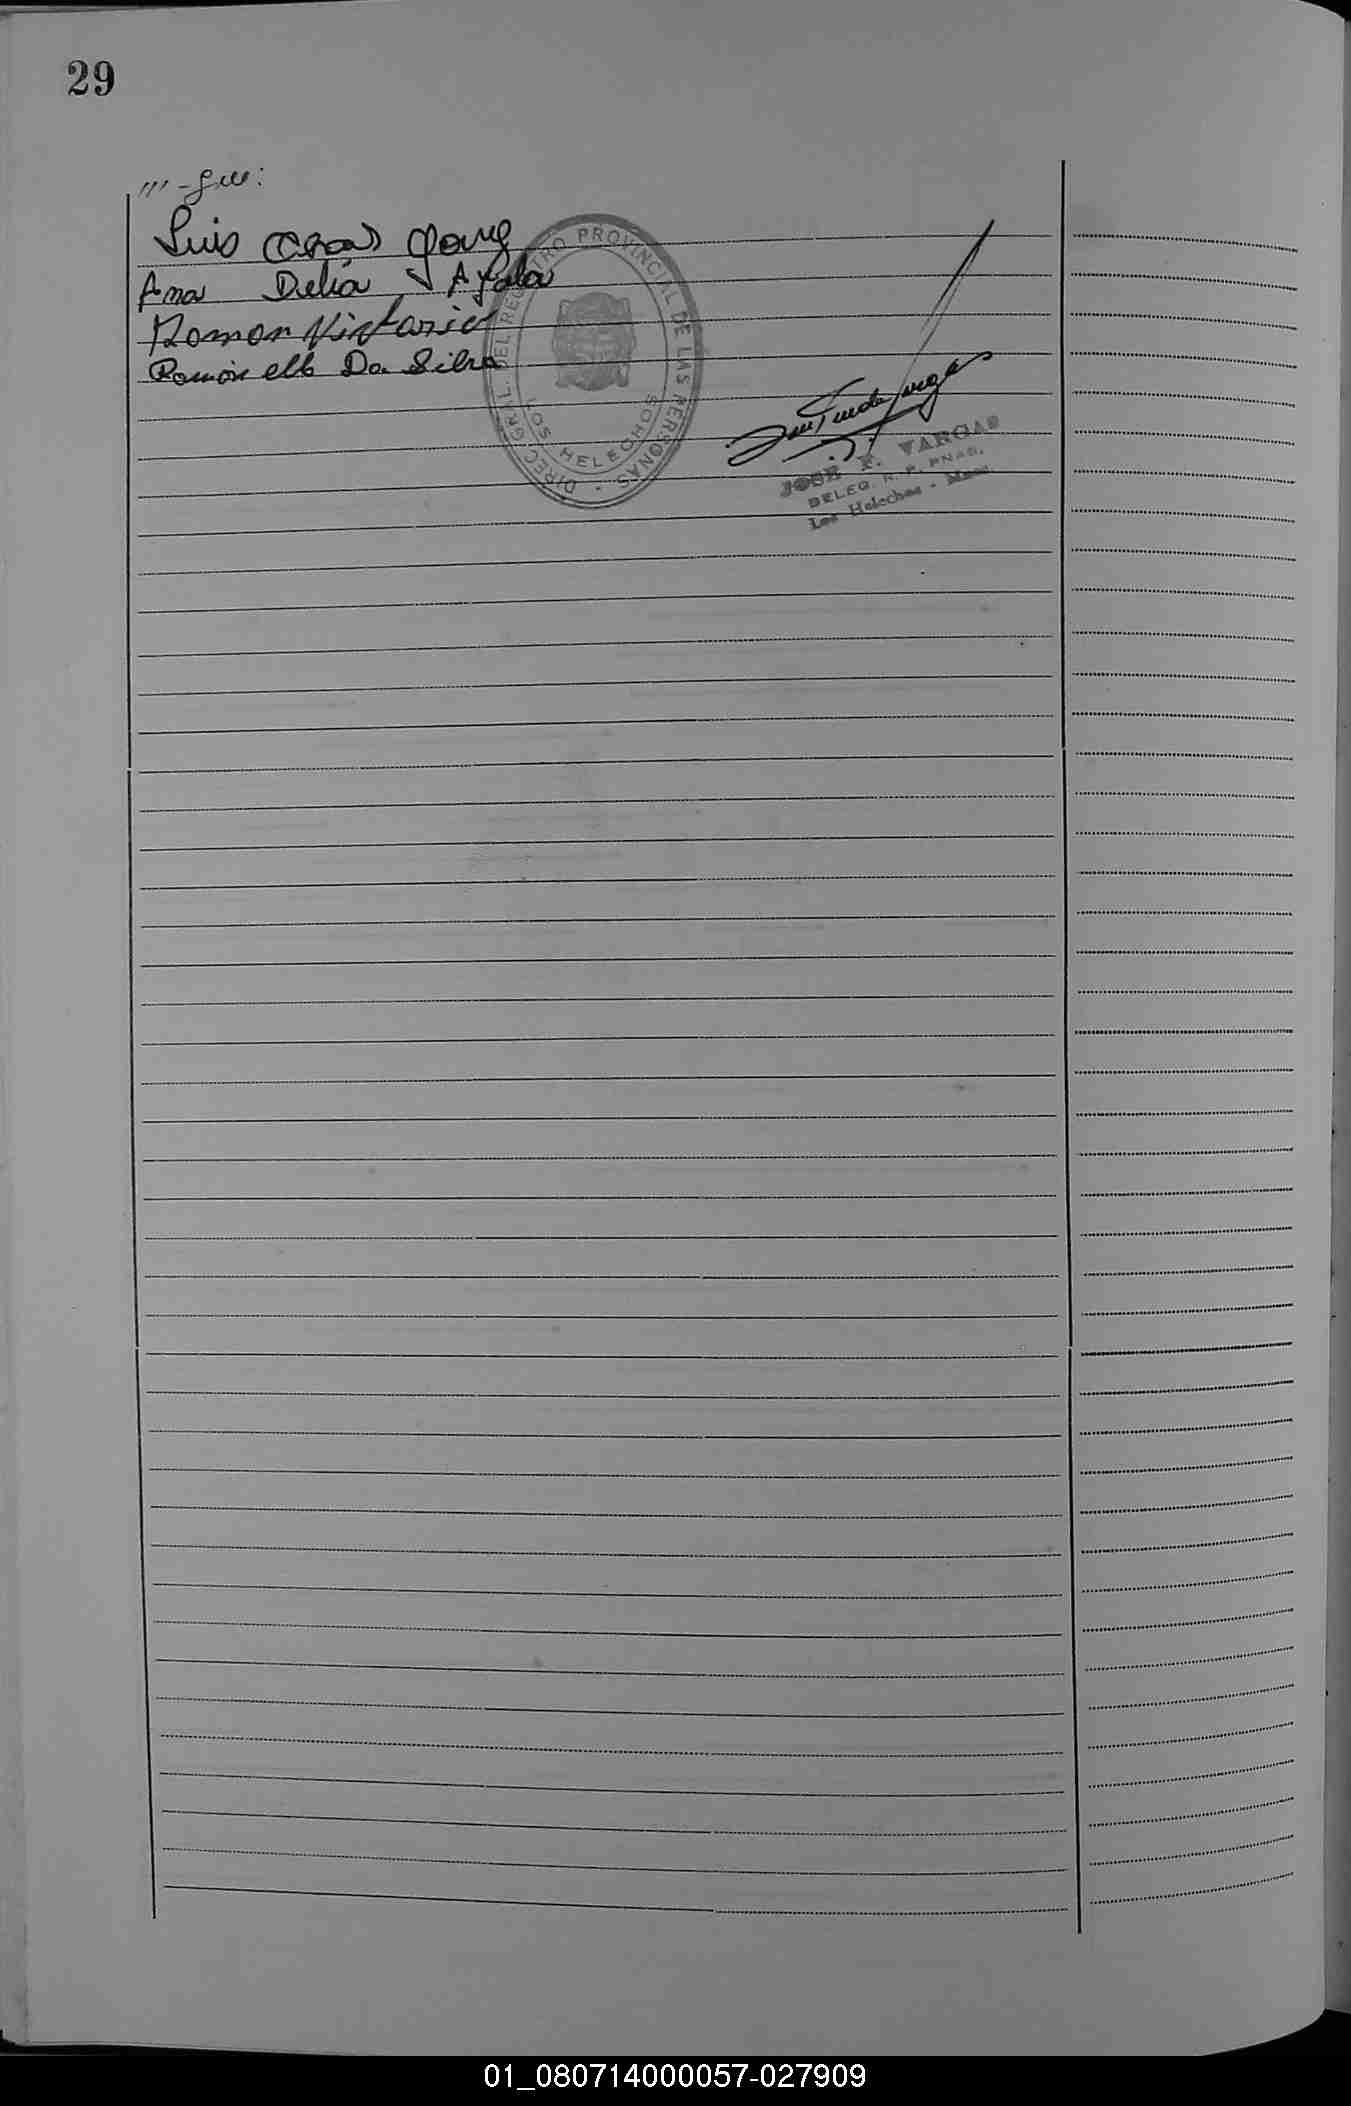 29
Luis
Ana Delia Ayala
Ramon Victorio
Ramón Da Silva
DIREC. GRAL. DEL REGISTRO PROVINCIAL DE LAS PERSONAS -
LOS HELECHOS
JOSE F. VARGAS
DELEG. R. P. PNAS.
Los Helechos - Mnes.
01_080714000057-027909